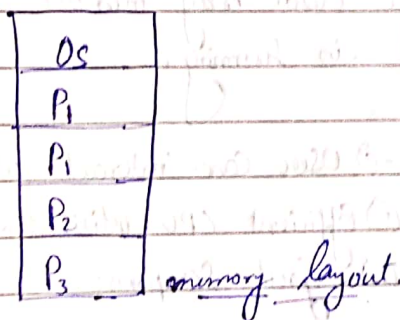 OS
P1
P1
P2
P3 memory layout.